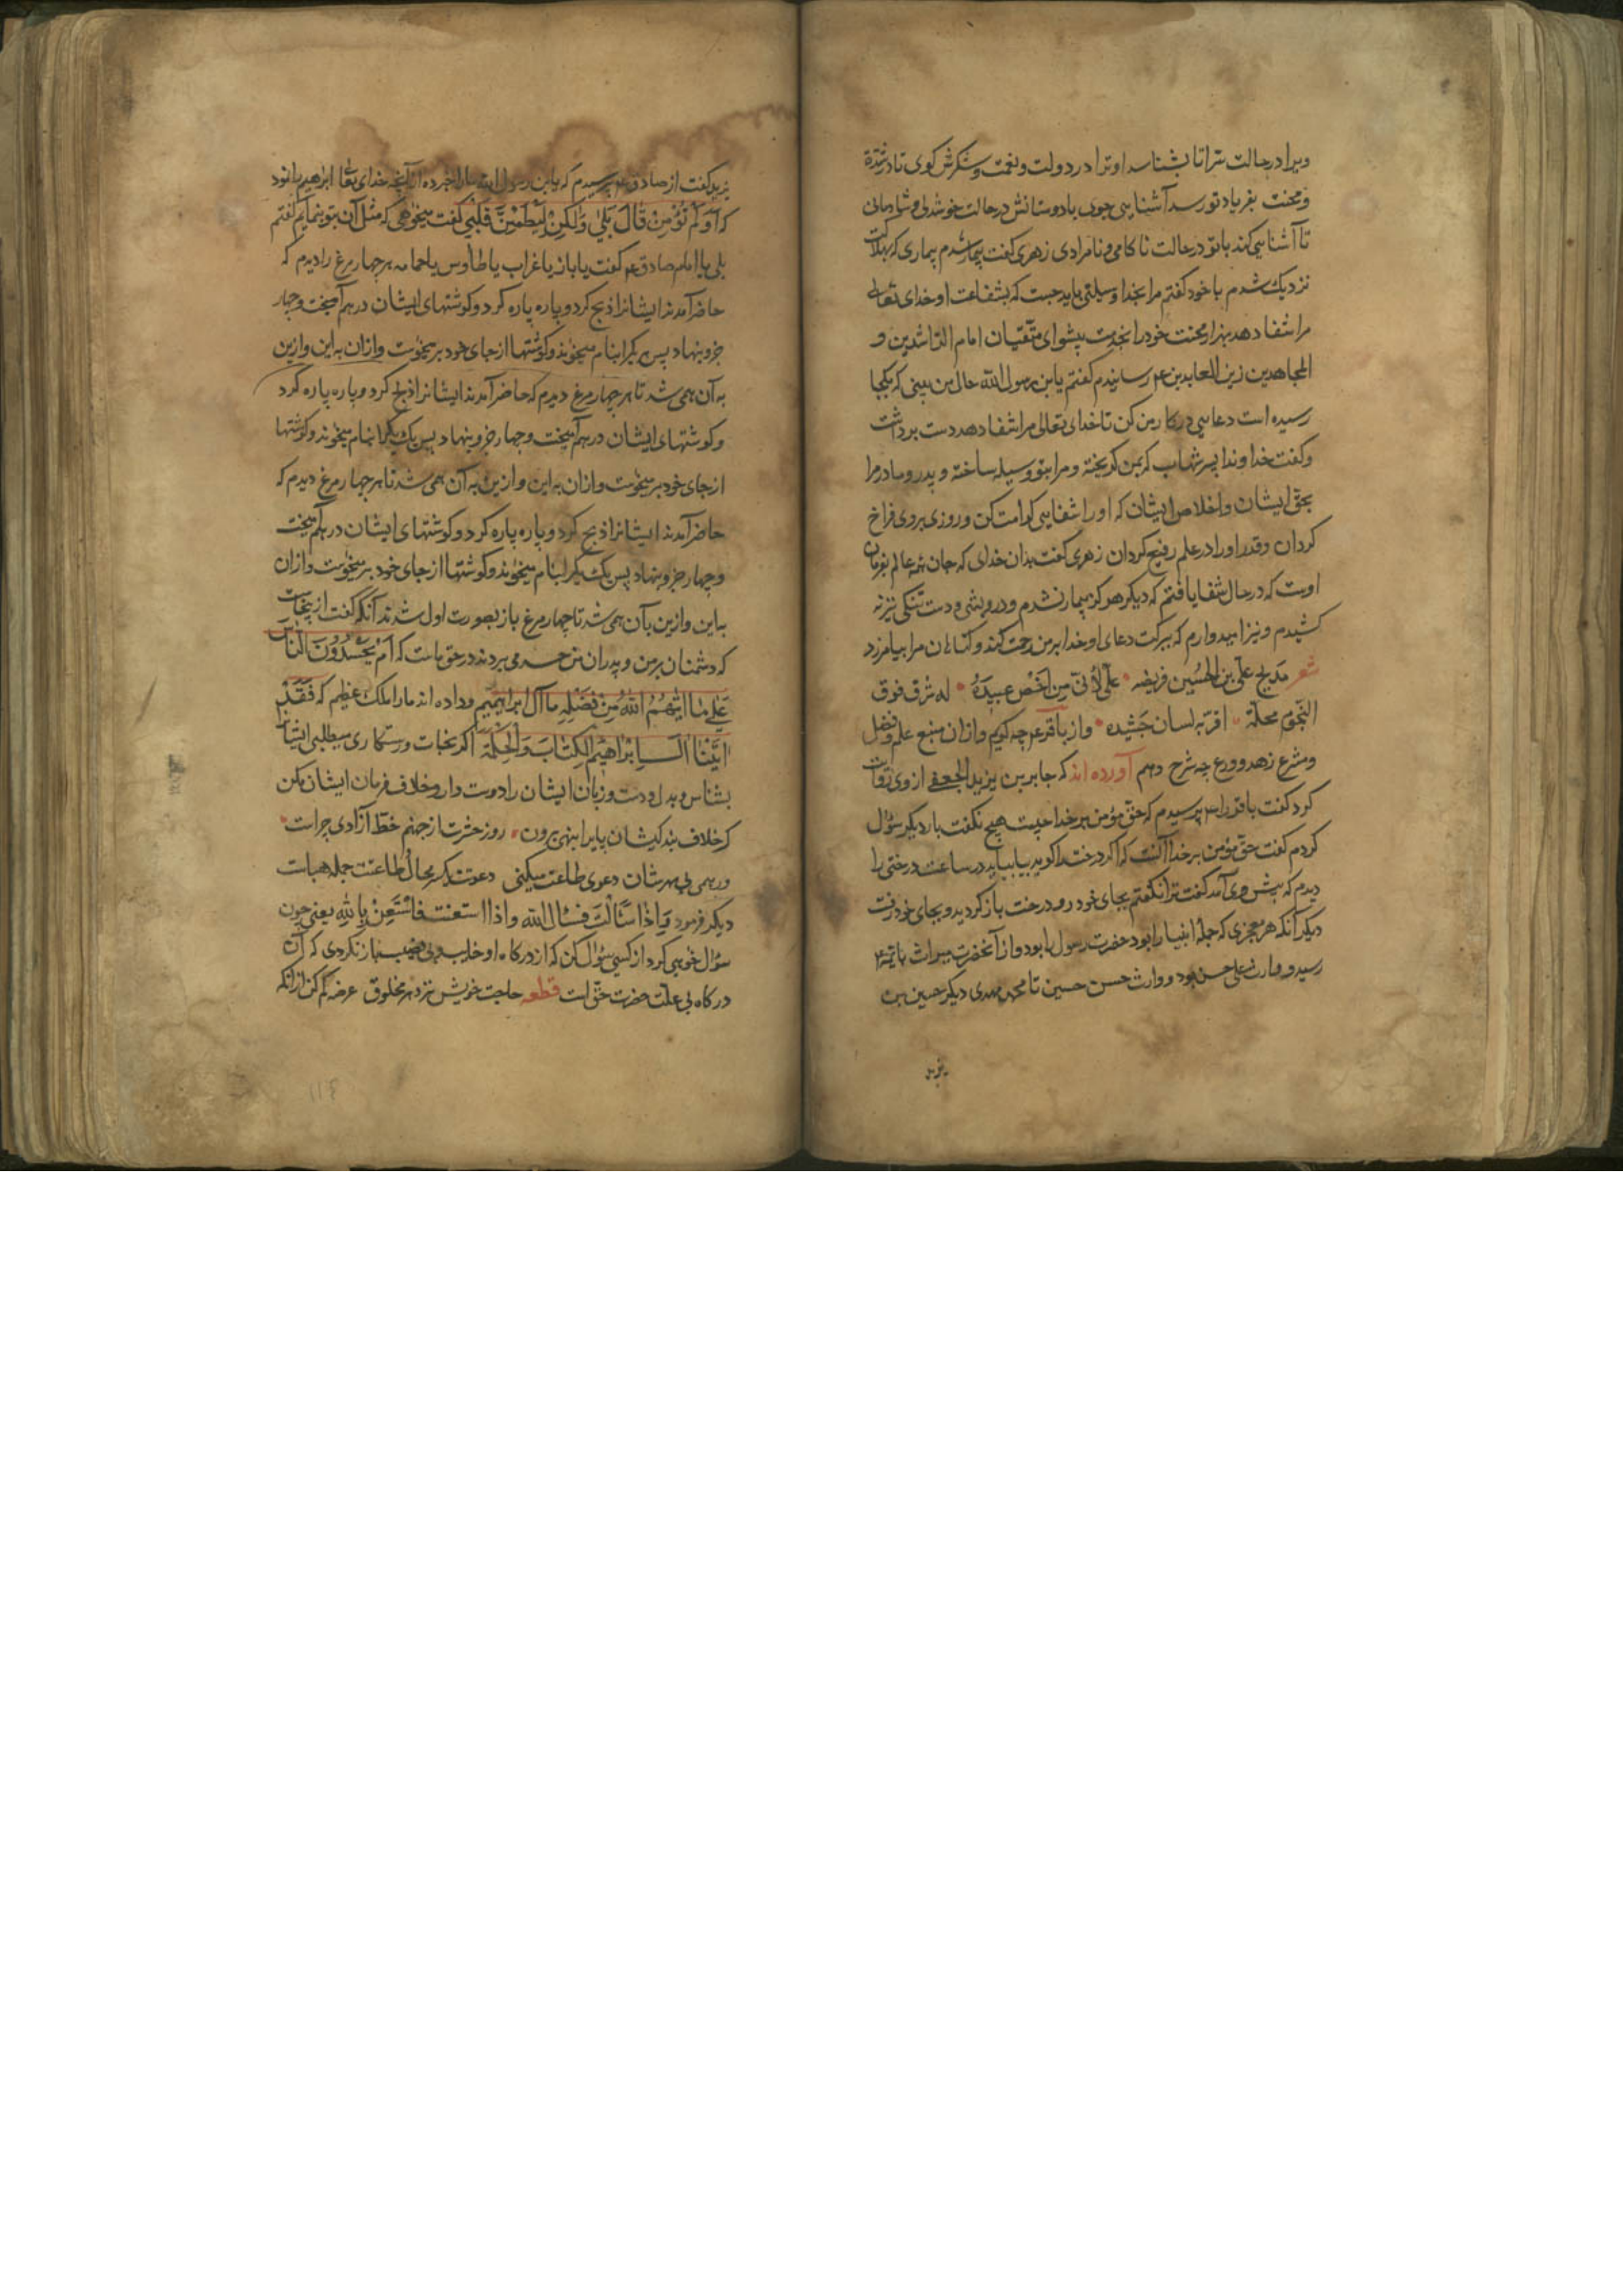 ویرا در حالت سرا تا بشناسد او ترا در دولت و نعمت و شکرش کوی تا در شدة
و محنت بفریاد تو رسد آشنایی جوی با دوستانش در حالت خوشدلی و شادمانی
تا آشنایی کند با تو در حالت ناکامی و نامرادی زهری کفت بیمار شدم بیماری که بهلاکت
نزدیک شدم با خود کفتم مرا بخدا وسیلتی باید جست که بشفاعت او خدای تعالی
مرا شفا دهد بهزار محنت خود را بخدمت پیشوای متقیان امام الراشدین و
المجاهدین زین العابدین ع رسانیدم کفتم یا بن رسول الله حال من ببینی که بکجا
رسیده است دعایی در کار من کن تا خدای تعالی مرا شفا دهد دست برداشت
و کفت خداوندا پسر شهاب کریمن کریخته و مرا بتو وسیله ساخته و پدر و مادر مرا
بحق ایشان و اخلاص ایشان که او را شفایی کرامت کن و روزی بروی فراخ
کردان و قدر او را در علم رفیع کردان زهری کفت بدان خدای که جان همه عالم بفرمان
اوست که در حال شفا یافتم که دیکر هرکز بیمار نشدم و درویشی و دست تنکی نیز نه
کشیدم و نیز امیدوارم که ببرکت دعای او خدا بر من رحمت کند و کناهان مرا بیامرزد
شعر مدیح علی بن الحسین فریضه علی لانی من اخص عبیده له شرف فوق
النجوم محله اقر به لسان حسوده و از باقر ع چه کویم و از ان منبع علم و فضل
و مشرع زهد و ورع چه شرح دهم آورده اند که جابر بن یزید الجعفی از وی روایت
کرد کفت باقر را ع پرسیدم که حق مؤمن بر خدا چیست هیچ نکفت بار دیکر سؤال
کردم کفت حق مؤمن بر خدا آنست که اکر درخت را کوید بیا بیاید در ساعت درختی را
دیدم که پیش وی آمد کفت ترا نکفتم بجای خود رو درخت باز کردید و بجای خود رفت
دیکر آنکه هر معجزی که جمله انبیا را بود حضرت رسول را بود و از آنحضرت میراث بائمه ع
رسید و وارث علی حسن بود و وارث حسن حسین تا محمد مهدی دیکر حسین بن
یزید
یزید کفت از صادق ع پرسیدم که یا بن رسول الله ما را خبر ده از آنچه خدای تعا ابرهیم را نمود
که اَوَلَمْ تُؤْمِنْ قَالَ بَلٰی وَلٰکِنْ لِیَطْمَئِنَّ قَلْبِی کفت میخواهی که مثل آن بتو بنمایم کفتم
بلی یا امام صادق ع کفت یا باز یا غراب یا طاوس یا حمامه هر چهار مرغ را دیدم که
حاضر آمدند ایشانرا ذبح کرد و پاره پاره کرد و کوشتهای ایشان در هم آمیخت و چهار
جزو بنهاد پس یک یک را بنام میخواند و کوشتها از جای خود بر میخوست و از ان به این و از ین
به آن همی شد تا هر چهار مرغ دیدم که حاضر آمدند ایشانرا ذبح کرد و پاره پاره کرد
و کوشتهای ایشان در هم آمیخت و چهار جزو بنهاد پس یک یک را بنام میخواند و کوشتها
از جای خود بر میخوست و از ان به این و از ین به آن همی شد تا هر چهار مرغ دیدم که
حاضر آمدند ایشانرا ذبح کرد و پاره پاره کرد و کوشتهای ایشان در هم آمیخت
و چهار جزو بنهاد پس یک یک را بنام میخواند و کوشتها از جای خود بر میخوست و از ان
به این و از ین بآن همی شد تا چهار مرغ باز بصورت اول شدند آنکه کفت از ینجاست
که دشمنان بر من و پدران من حسد می بردند در حق ماست که اَمْ یَحْسُدُوْنَ النَّاسَ
عَلٰی مَا اٰتٰیهُمُ اللّٰهُ مِنْ فَضْلِهِ ما آل ابراهیمیم و داده اند ما را ملک عظیم که فَقَدْ
اٰتَیْنَا اٰلَ اِبْرَاهِیْمَ الْکِتَابَ وَالْحِکْمَةَ اکر نجات و رستکاری میطلبی ایشانرا
بشناس و بدل و دست و زبان ایشان را دوست دار و خلاف فرمان ایشان مکن
کر خلاف بندکیشان پای را بنهی برون روز حشرت از جهنم خط آزادی چراست
ور همی بی مهرشان دعوی طاعت میکنی دعوتت یکسر محال و طاعتت جمله هباست
دیکر فرمود فیاذا سَٔالْتَ فسئال الله واذا استعنت فاسْتَعِنْ بِاللّٰهِ یعنی چون
سؤال خواهی کرد از کسی سؤال کن که از درکاه او خایب و بی نصیب باز نکردی که آن
درکاه بی علت حضرت حق است قطعه حاجت خویش نزد هر مخلوق عرضه کم کن از انکه